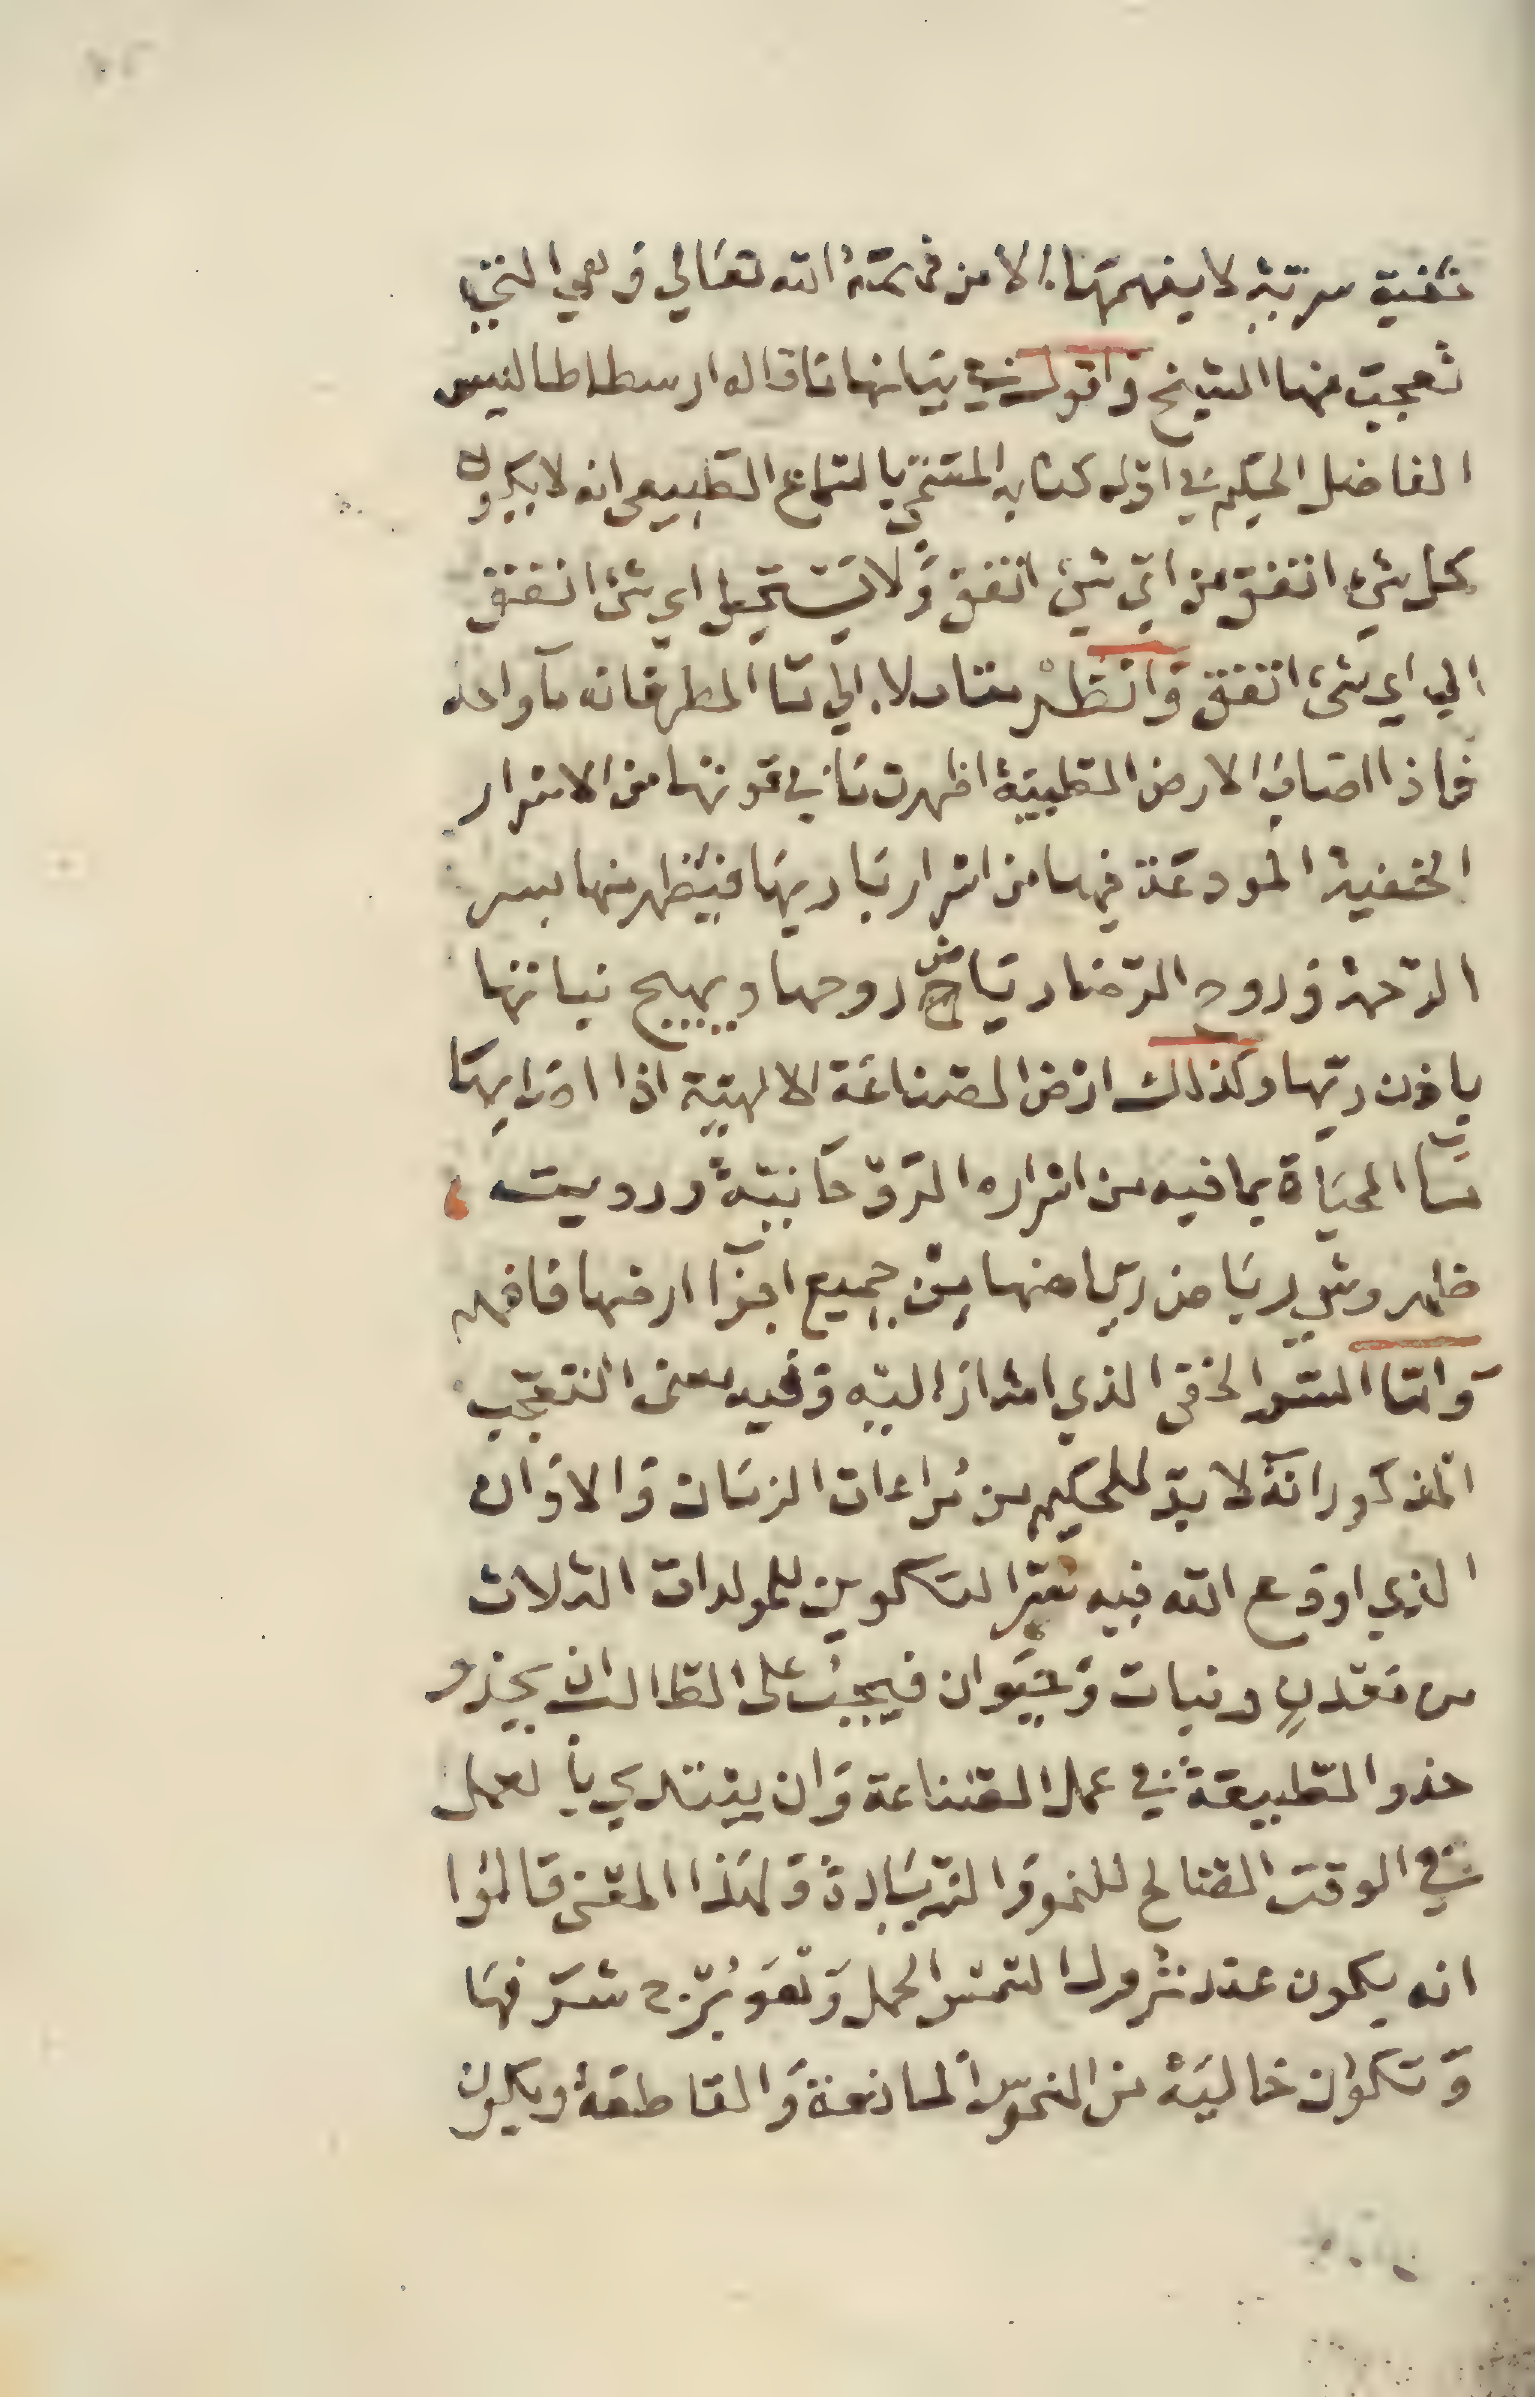 خفية سرية لا يفهمها الا من فهمه الله تعالي وهي التي
تعجب منها الشيخ واقول في بيانها ما قاله ارسطاطاليس
الفاضل الحكيم في اول كتابه المسمي بالسماع الطبيعي انه لا يكون
كل شيء اتفق من اي شيء اتفق ولا يستحيل اي شيء اتفق
الي اي شيء اتفق وانظر مثالا الي ماء المطر فانه ماء واحد
فاذا اصاب الارض الطيبة اظهرت ما في قوتها من الاسرار
الخفية المودعة فيها من اسرار باريها فيظهر منها بسر
الرحمة وروح الرضا رياض روحها ويهيج نباتها
باذن ربها وكذلك ارض الصناعة الالهية اذا اصابها
ماء الحياة بما فيه من اسراره الروحانية ورويت
ظهر وشي رياض ربيا منها من جميع اجزاء ارضها فافهم
واما السر الخفي الذي اشار اليه وفيه معني التعجب
المذكور انه لا بد للحكيم من مراعات الزمان والاوان
الذي اوقع الله فيه سر التكوين للمولدات الثلاث
من معدن ونبات وحيوان فيجب على الطالب ان يحذو
حذو الطبيعة في عمل الصناعة وان يبتدي بالعمل
في الوقت الصالح للنمو والزيادة ولهذا المعنى قالوا
انه يكون عند نزول الشمس الحمل وهو برج شرفها
وتكون خالية من النحوس المانعة والقاطعة ويكون